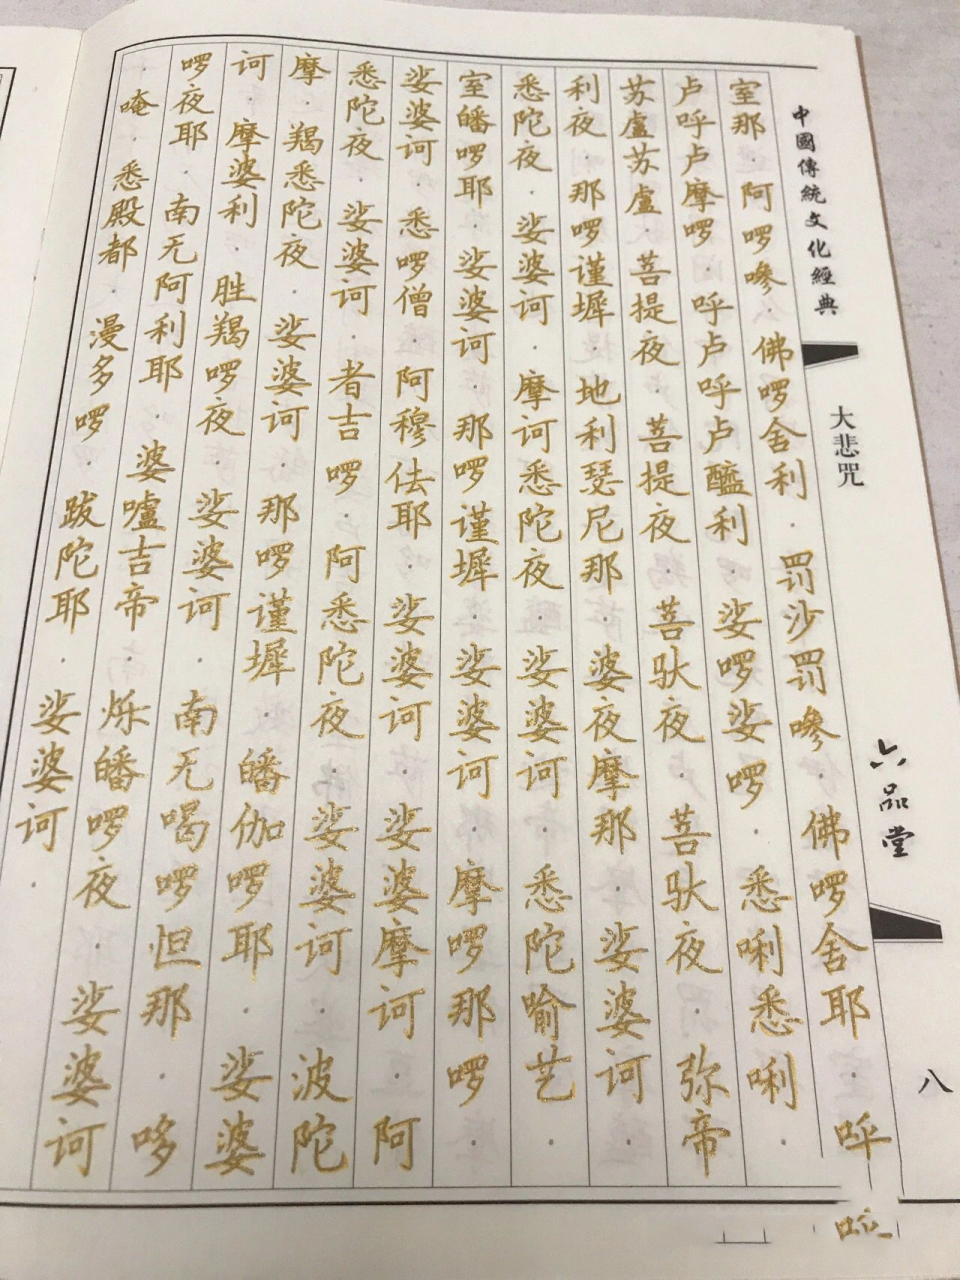 中國傳統文化經典
大悲咒
六品堂
八
室那 阿啰嘇 佛啰舍利 · 罚沙罚嘇 佛啰舍耶 · 呼
卢呼卢摩啰 呼卢呼卢醯利 娑啰娑啰 · 悉唎悉唎 ·
苏盧苏盧 菩提夜 菩提夜 菩驮夜 菩驮夜 弥帝
利夜 那啰谨墀 地利瑟尼那 婆夜摩那 娑婆诃 ·
悉陀夜 · 娑婆诃 · 摩诃悉陀夜 · 娑婆诃 · 悉陀喻艺 ·
室皤啰耶 娑婆诃 那啰谨墀 娑婆诃 · 摩啰那啰 ·
娑婆诃 悉啰僧 阿穆佉耶 娑婆诃 · 娑婆摩诃 · 阿
悉陀夜 · 娑婆诃 · 者吉啰 · 阿悉陀夜 · 娑婆诃 波陀
摩 羯悉陀夜 · 娑婆诃 那啰谨墀 皤伽啰耶 · 娑婆
诃 · 摩婆利 · 胜羯啰夜 · 娑婆诃 · 南无喝啰怛那 · 哆
啰夜耶 · 南无阿利耶 · 婆嚧吉帝 · 烁皤啰夜 · 娑婆诃
唵 · 悉殿都 · 漫多啰 · 跋陀耶 · 娑婆诃